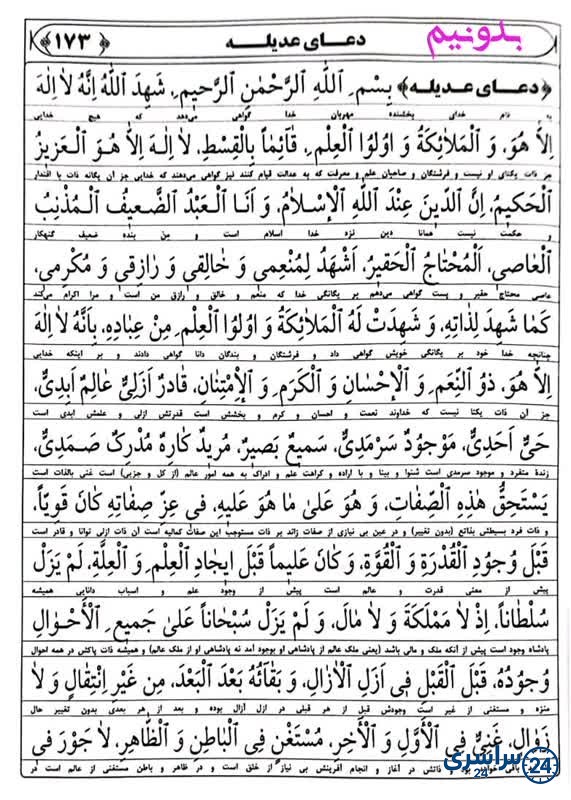 دعای عدیله ﴿۱۷۳﴾
بدونیم
﴿دعای عدیله﴾ بِسْمِ اللّٰهِ الرَّحْمٰنِ الرَّحیمِ، شَهِدَ اللّٰهُ اِنَّهُ لاٰ اِلٰهَ
به نام خدای بخشنده مهربان خدا گواهی می‌دهد که هیچ خدایی
اِلاّٰ هُوَ، وَ الْمَلاٰئِکَةُ وَ اوُلُوا الْعِلْمِ، قٰآئِماً بِالْقِسْطِ، لاٰ اِلٰهَ اِلاّٰ هُوَ الْعَزیزُ
جز ذات یکتای او نیست و فرشتگان و صاحبان علم و معرفت که به عدالت قیام کنند نیز گواهی می‌دهند که خدایی جز آن یگانه ذات با اقتدار
الْحَکیمُ، اِنَّ الدّینَ عِنْدَ اللّٰهِ الْاِسْلاٰمُ، وَ اَنَا الْعَبْدُ الضَّعیفُ الْمُذْنِبُ
و حکمت نیست همانا دین نزد خدا اسلام است و من بنده ضعیف گنهکار
الْعٰاصی، اَلْمُحْتٰاجُ الْحَقیرُ، اَشْهَدُ لِمُنْعِمی وَ خٰالِقی وَ رٰازِقی وَ مُکْرِمی،
عاصی محتاج حقیر و پست گواهی می‌دهم بر یگانگی خدا که منعم و خالق و رازق من است و مرا اکرام می‌کند
کَمٰا شَهِدَ لِذٰاتِهِ، وَ شَهِدَتْ لَهُ الْمَلاٰئِکَةُ وَ اوُلُوا الْعِلْمِ مِنْ عِبٰادِهِ، بِاَنَّهُ لاٰ اِلٰهَ
چنانچه خدا خود بر یگانگی خویش گواهی داد و فرشتگان و بندگان دانا گواهی دادند و بر اینکه خدایی
اِلاّٰ هُوَ، ذُو النِّعَمِ وَ الْاِحْسٰانِ وَ الْکَرَمِ وَ الْاِمْتِنٰانِ، قٰادِرٌ اَزَلِیٌّ عٰالِمٌ اَبَدِیٌّ،
جز آن ذات یکتا نیست که خداوند نعمت و احسان و کرم و بخشش است قدرتش ازلی و علمش ابدی است
حَیٌّ اَحَدِیٌّ، مَوْجُودٌ سَرْمَدِیٌّ، سَمیعٌ بَصیرٌ، مُریدٌ کٰارِهٌ مُدْرِکٌ صَمَدِیٌّ،
زندهٔ متفرد و موجود سرمدی است شنوا و بینا و با اراده و کراهت علم و ادراک به همه امور عالم (از کل و جزیی) است غنی بالذات است
یَسْتَحِقُّ هٰذِهِ الصِّفٰاتِ، وَ هُوَ عَلیٰ مٰا هُوَ عَلَیْهِ، فی عِزِّ صِفٰاتِهِ کٰانَ قَوِیّاً،
و ذات فرد بسیطش بذاتع (بدون تغییر) و در عین بی نیازی از صفات زائد بر ذات مستوجب این صفات کمالیه است آن ذات ازلی توانا و قادر است
قَبْلَ وُجُودِ الْقُدْرَةِ وَ الْقُوَّةِ، وَ کٰانَ عَلیماً قَبْلَ ایجٰادِ الْعِلْمِ وَ الْعِلَّةِ، لَمْ یَزَلْ
پیش از معنی قدرت و عالم است پیش از وجود علم و اسباب دانایی همیشه
سُلْطٰاناً، اِذْ لاٰ مَمْلَکَةَ وَ لاٰ مٰالَ، وَ لَمْ یَزَلْ سُبْحٰاناً عَلیٰ جَمیعِ الْاَحْوٰالِ
پادشاه وجود است پیش از آنکه ملک و مالی باشد (یعنی ملک عالم از پادشاهی او بوجود آمد نه پادشاهی او از ملک عالم) و همیشه ذات پاکش در همه احوال
وُجُودُهُ، قَبْلَ الْقَبْلِ فی اَزَلِ الْاٰزٰالِ، وَ بَقٰائُهُ بَعْدَ الْبَعْدِ، مِن غَیْرِ اِنْتِقٰالٍ وَ لاٰ
منزه و مستغنی از غیر است وجودش قبل از هر قبلی در ازل آزال بوده و بعد از هر بعدی بدون تغییر حال
زَوٰالٍ، غَنِیٌّ فِی الْاَوَّلِ وَ الْاٰخِرِ، مُسْتَغْنٍ فِی الْبٰاطِنِ وَ الظّٰاهِرِ، لاٰ جَوْرَ فی
باقی خواهد بود ذاتش در آغاز و انجام آفرینش بی نیاز از خلق است و در ظاهر و باطن مستغنی از عالم است در
سراسری
24
24